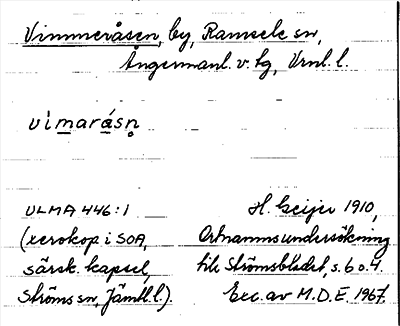 Vimmeråsen, by, Ramsele sn,
Ångermanl. v. tg, Vrnl. l.
vimarásn̥
ULMA 446:1 H. Geijer 1910,
(xerokop i SOA, Ortnamnsundersökning
särsk. kapsel, till Strömsbladet, s. 6 o. 4.
Ströms sn, Jämtl. l.). Exc. av M.D.E. 1967.